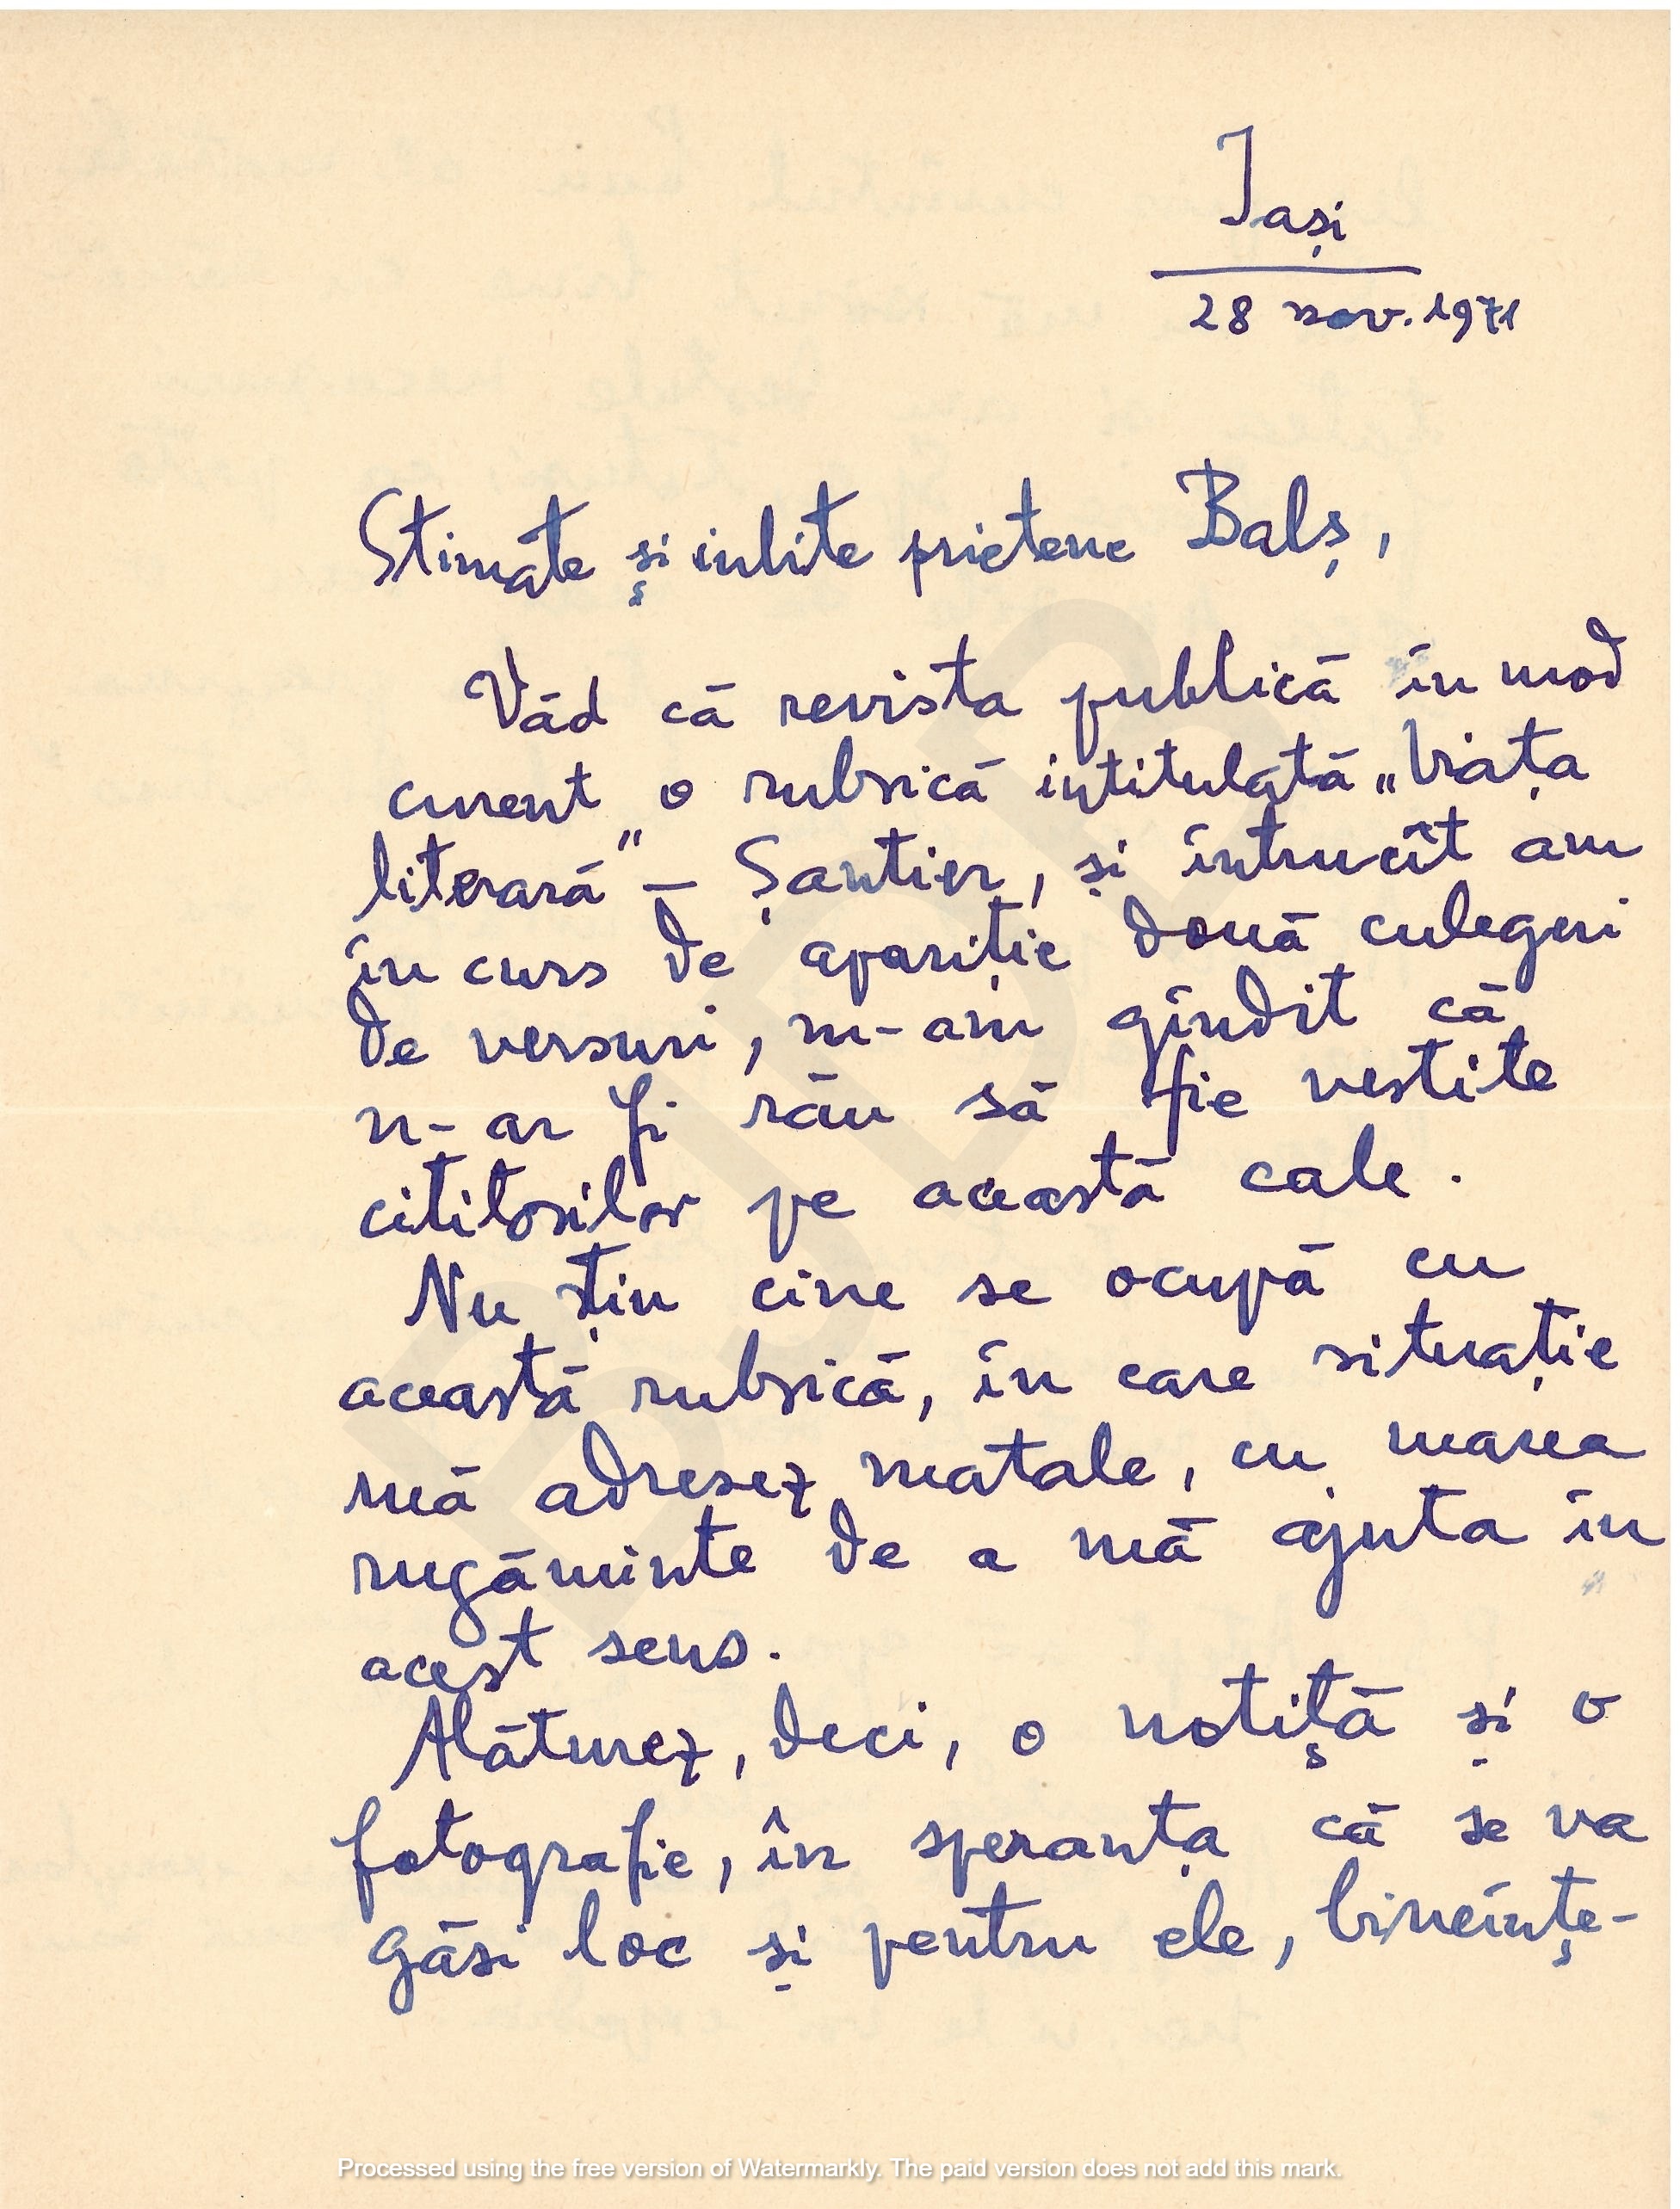 Iași
28 nov. 1971
Stimate și iubite prietene Balș,
Văd că revista publică în mod
curent o rubrică intitulată „Viața
literară” – Șantier, și întrucît am
în curs de apariție două culegeri
de versuri, m-am gîndit că
n-ar fi rău să fie vestite
cititorilor pe această cale.
Nu știu cine se ocupă cu
această rubrică, în care situație
mă adresez matale, cu marea
rugăminte de a mă ajuta în
acest sens.
Alăturez, deci, o notiță și o
fotografie, în speranța că se va
găsi loc și pentru ele, bineînțe-
BJDB
Processed using the free version of Watermarkly. The paid version does not add this mark.